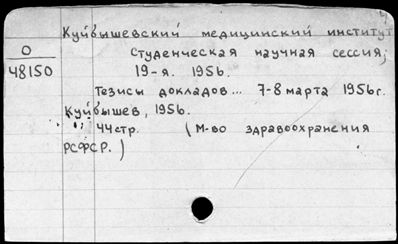 Куйбышевский медицинский институт
О
48150
Студенческая научная сессия,
19-я. 1956.
Тезисы докладов... 7-8 марта 1956г.
Куйбышев, 1956.
44стр. (М-во здравоохранения
РСФСР.)